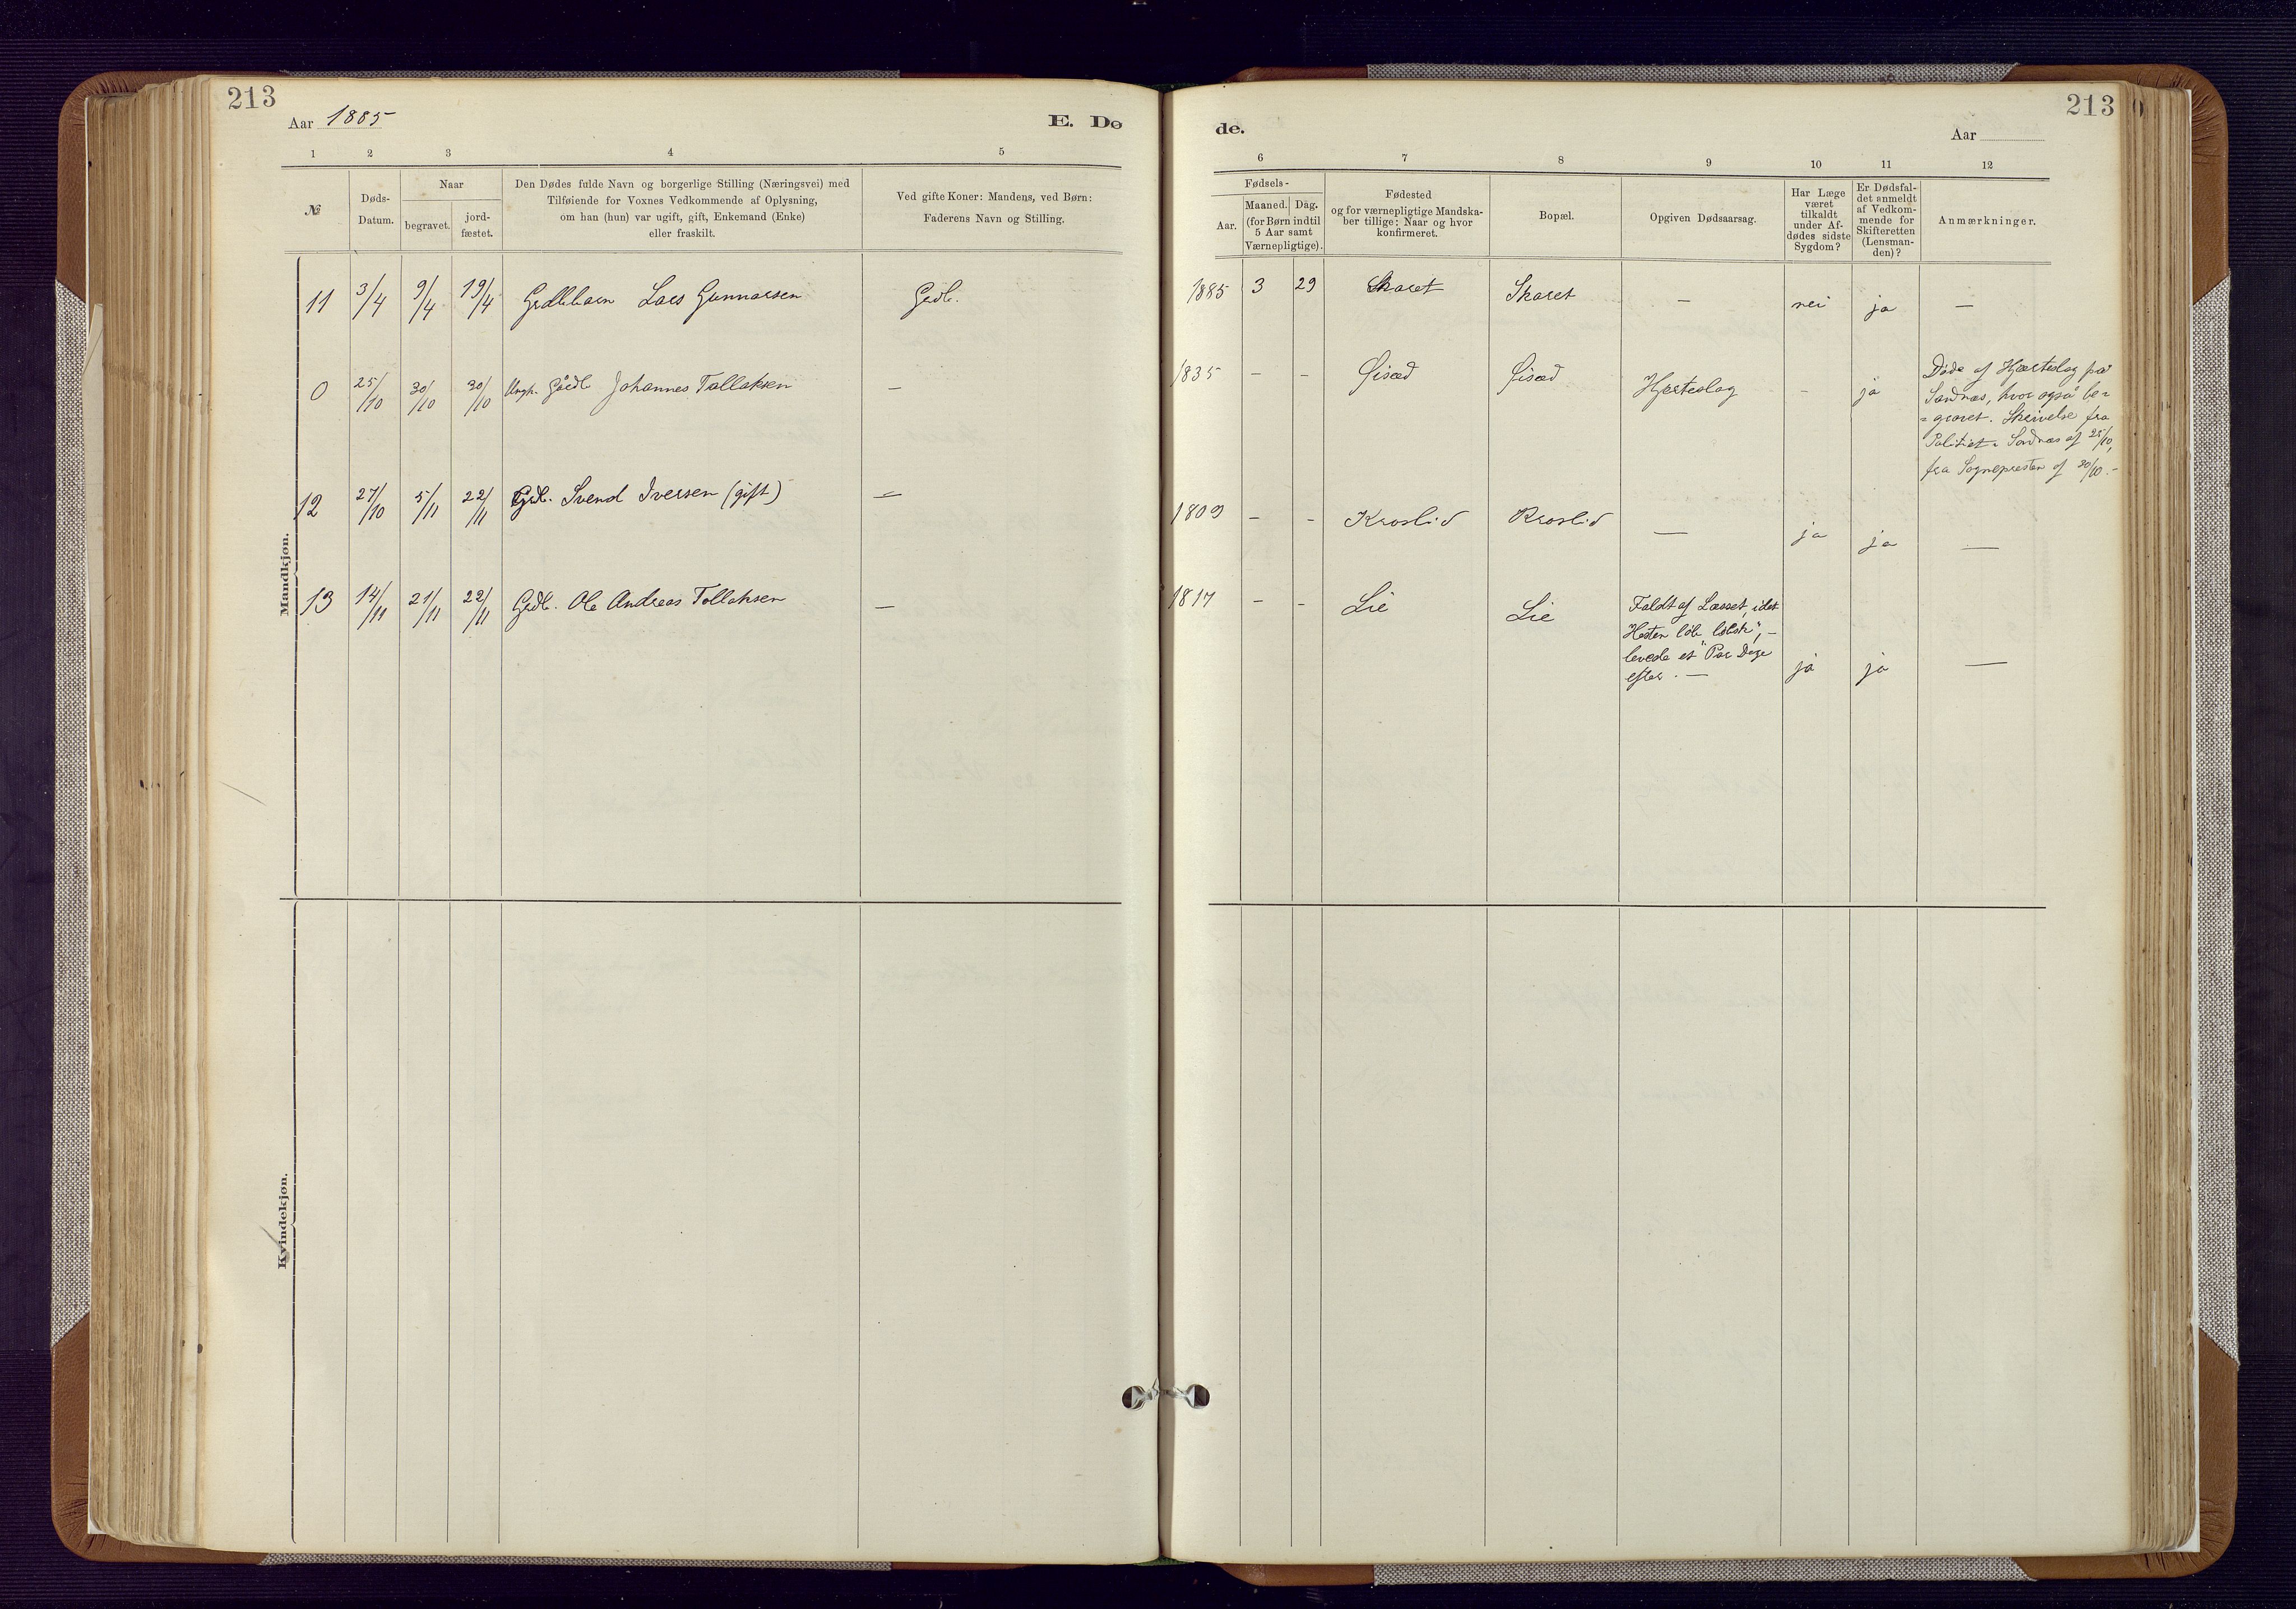 213
Aar 1885
E. Dø
1 2 3 4 5
№
Døds-
Datum.
Naar
begravet.
jord-
fæstet.
Den Dødes fulde Navn og borgerlige Stilling (Næringsvei) med
Tilføiende for Voxnes Vedkommende af Oplysning,
om han (hun) var ugift, gift, Enkemand (Enke)
eller fraskilt.
Ved gifte Koner: Mandens, ved Børn:
Faderens Navn og Stilling.
Mandkjøn.
11 3/4 9/4 19/4 Grdbbarn Lars Gunnarsen Grdb.
0 25/10 30/10 30/10 Ungk. Johannes Tallaksen —
12 27/10 5/11 22/11 Grdb. Svend Iversen (gift) —
13 14/11 21/11 22/11 Grdb. Ole Andreas Tollaksen —
Kvindekjøn.
213
de.
Aar
6 7 8 9 10 11 12
Fødsels-
Aar.
Maaned. Dag.
(for Børn indtil
5 Aar samt
Værnepligtige).
Fødested
og for værnepligtige Mandska-
ber tillige: Naar og hvor
konfirmeret.
Bopæl.
Opgiven Dødsaarsag.
Har Læge
været
tilkaldt
under Af-
dødes sidste
Sygdom?
Er Dødsfal-
det anmeldt
af Vedkom-
mende for
Skifteretten
(Lensman-
den)?
Anmærkninger.
1885 3 29 Skaret Skaret — nei ja —
1835 - - Øisæd Øisæd Hjerteslag - ja
Døde af Hjærteslag paa
Sandnæs, hvor også be-
-gravet. Skrivelse fra
Politiet i Sandnæs af 25/10,
fra Sognepresten af 30/10.-
1809 - - Kroslid Kroslid — ja ja —
1817 - - Lie Lie
Faldt af Læsset, idet
Hesten løb "løbsk", -
levede et Par Dage
efter. —
ja ja —